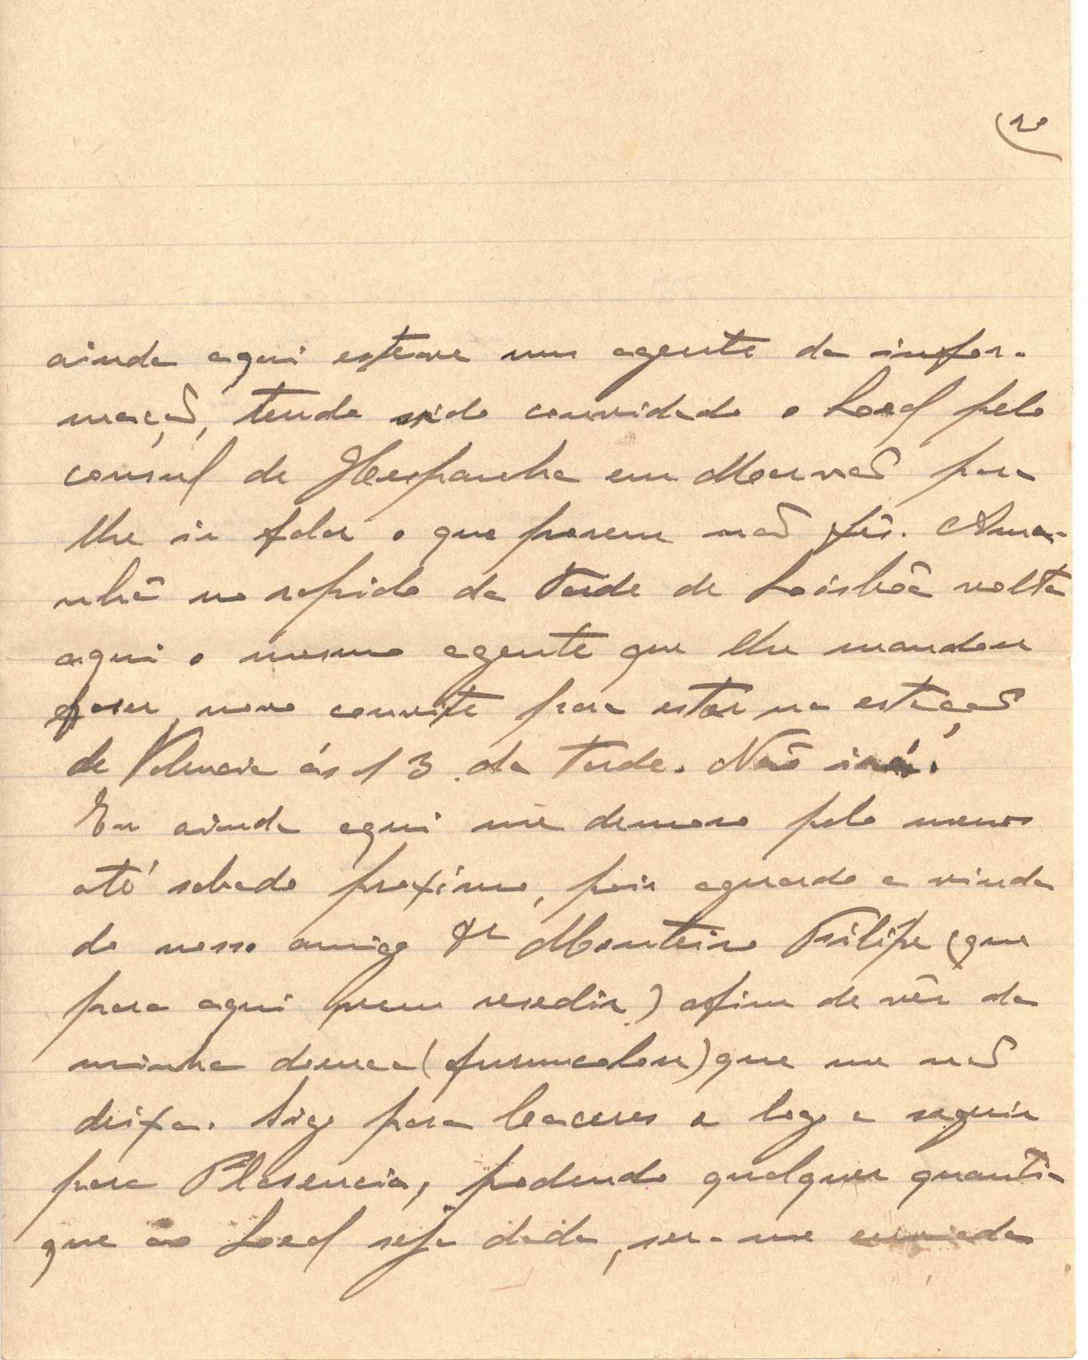 (2
ainda aqui esteve um agente da infor-
mação, tendo sido convidado o Losef pelo
consul de Hespanha em Marvão para
lhe ir falar o que porem não fês. Ama-
nhã no rapido da tarde de Loisbôa volta
aqui o mesmo agente que lhe mandou
fazer novo convite para estar na estação
de Valencia ás 13 da tarde. Não irá.
Eu ainda aqui me demoro pelo menos
até sabado proximo, pois aguardo a vinda
do nosso amigo Dr Monteiro Filipe (que
para aqui vem resedir) afim de vêr da
minha doença (furunculose) que me não
deixa. Sigo para Caceres e logo a seguir
para Plasencia, podendo qualquer quantia
que ao Losef seja dada, ser-me enviada